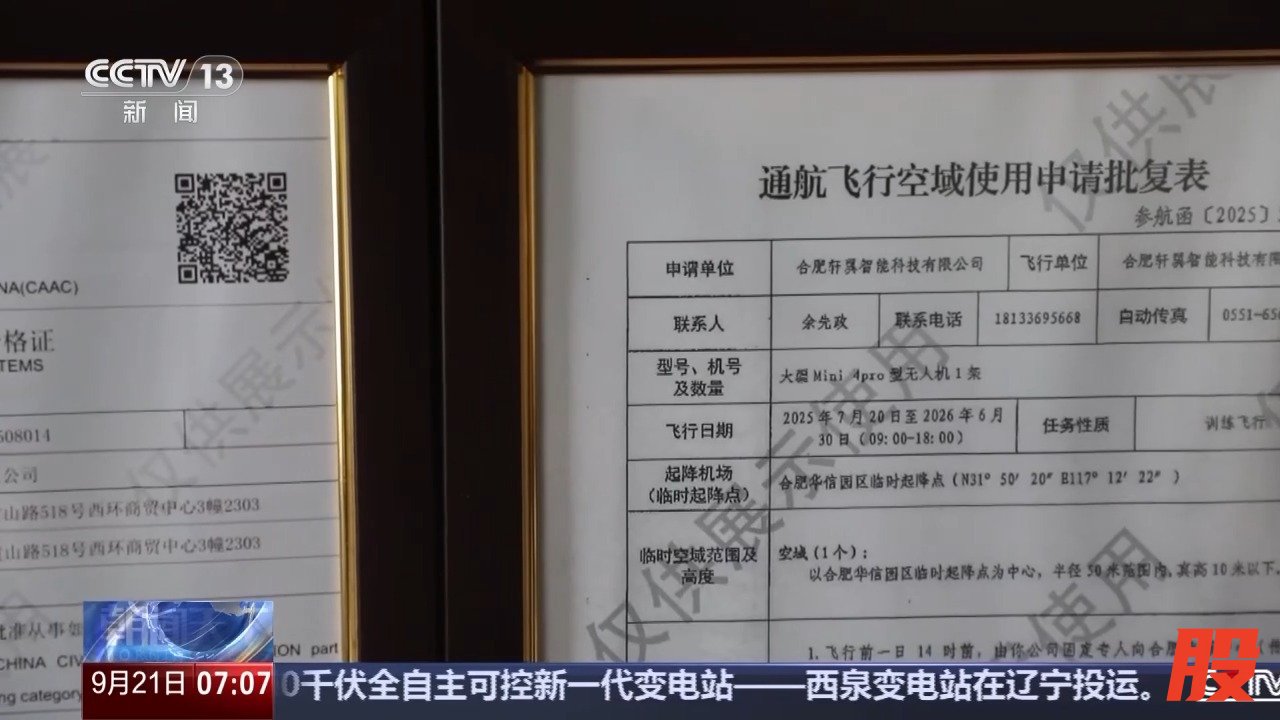 CCTV 13
新闻
NA(CAAC)
格证
TEMS
508014
公司
山路518号西环商贸中心3幢2303
山路518号西环商贸中心3幢2303
批准从事如
CHINA CIV
TION part
ng category
仅供展示使用
仅供展
仅供展示使用
使用
通航飞行空域使用申请批复表
参航函〔2025〕
申请单位 合肥轩翼智能科技有限公司 飞行单位 合肥轩翼智能科技有限
联系人 余先政 联系电话 18133695668 自动传真 0551-656
型号、机号
及数量
大疆Mini 4pro型无人机1架
飞行日期
2025年7月20日至2026年6月
30日(09:00-18:00)
任务性质 训练飞行
起降机场
(临时起降点)
合肥华信园区临时起降点(N31° 50′ 20″ E117° 12′ 22″ )
临时空域范围及
高度
空域(1个):
以合肥华信园区临时起降点为中心，半径50米范围内，真高10米以下。
1、飞行前一日14时前，由你公司固定专人向合肥
9月21日 07:07
0千伏全自主可控新一代变电站——西泉变电站在辽宁投运。
股